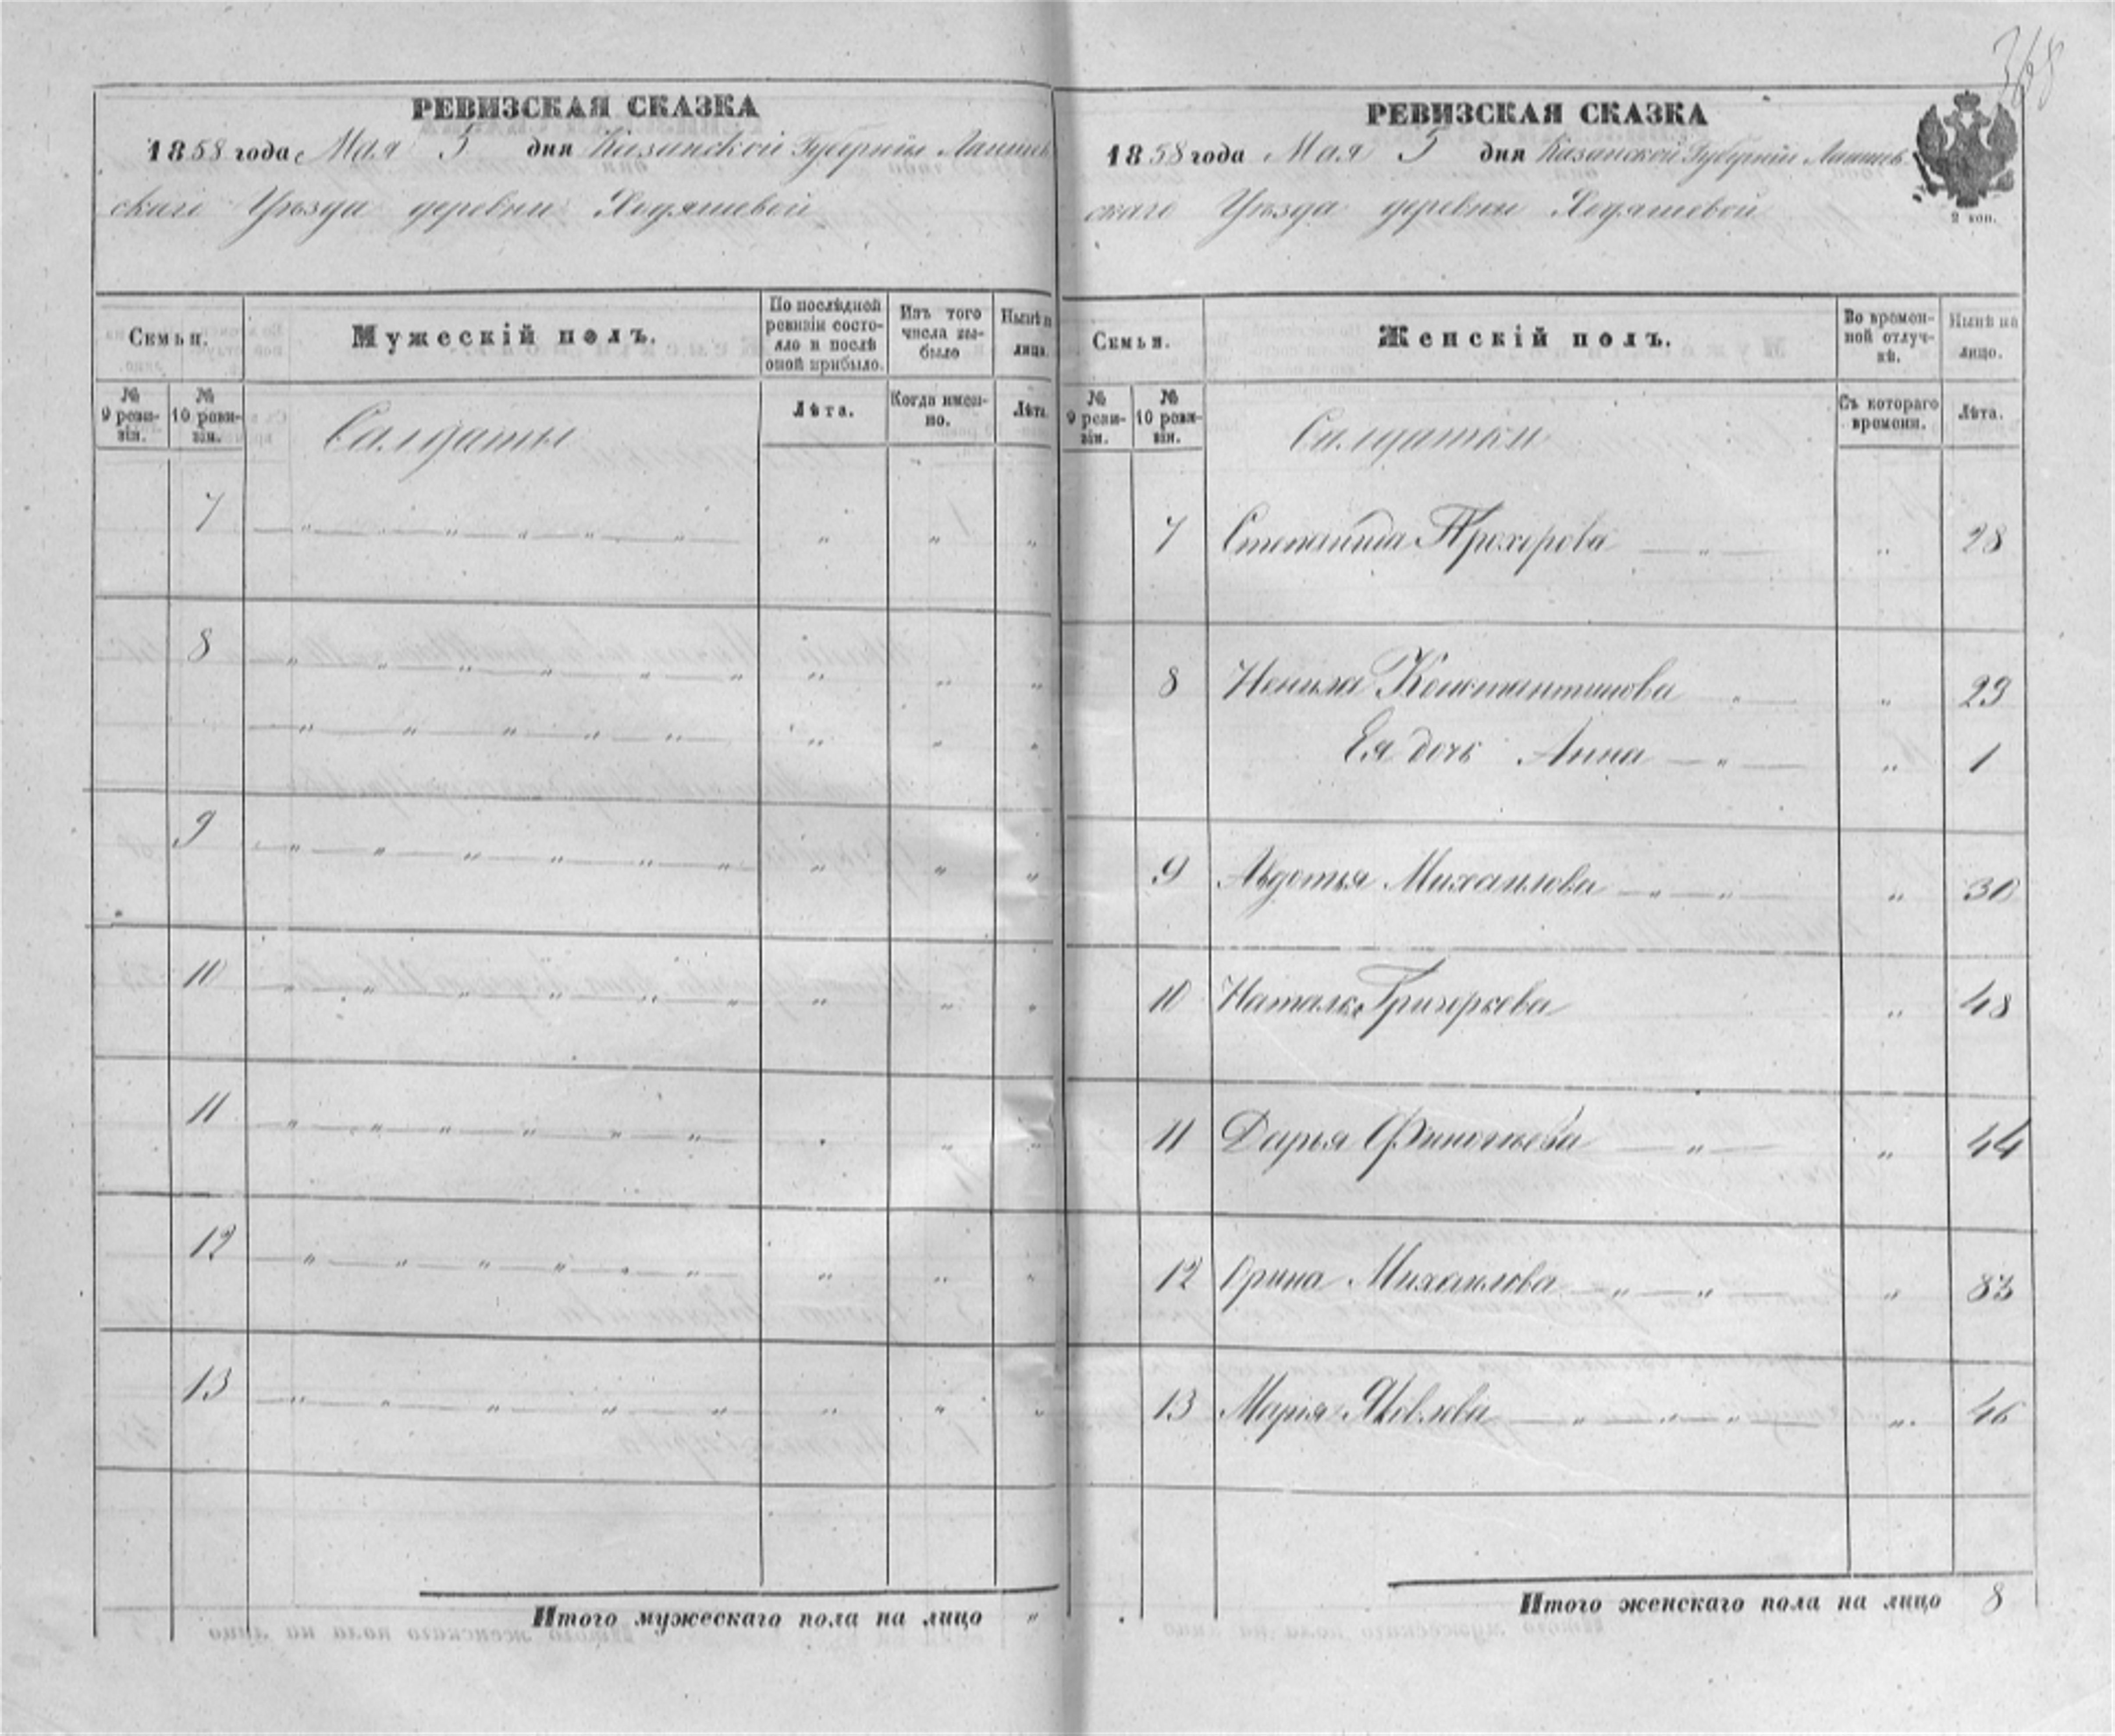 368
РЕВИЗСКАЯ СКАЗКА
1858 года Мая 5 дня Казанской Губерніи Лаишев
скаго Уѣзда деревни Ходяшевой
Семьи.
Мужескій полъ.
По послѣдней ревизіи состояло и послѣ оной прибыло.
Изъ того числа выбыло
Нынѣ на лицо.
№ 9 ревизіи.
№ 10 ревизіи.
Лѣта.
Когда именно.
Лѣта.
Салдаты
7 „ „ „ „ „ „ „ „
8 „ „ „ „ „ „ „ „ „
„ „ „ „ „ „ „ „
9 „ „ „ „ „ „ „ „ „
10 „ „ „ „ „ „ „ „ „
11 „ „ „ „ „ „ „ „ „
12 „ „ „ „ „ „ „ „ „
13 „ „ „ „ „ „ „ „
Итого мужескаго пола на лицо „
РЕВИЗСКАЯ СКАЗКА
1858 года Мая 5 дня Казанской Губерніи Лаишев
скаго Уѣзда деревни Ходяшевой
2 коп.
Семьи.
Женскій полъ.
Во временной отлучкѣ.
Нынѣ на лицо.
№ 9 ревизіи.
№ 10 ревизіи.
Съ котораго времени.
Лѣта.
Салдатки
7 Степанида Прохорова „ „ 28
8 Ненила Константинова „ „ 29
Ея дочь Анна „ „ 1
9 Авдотья Михаилова „ „ „ 30
10 Наталья Григорьева „ 48
11 Дарья Финогиева „ „ 44
12 Орина Михаилова „ „ „ 83
13 Марія Яковлева „ „ „ „ 46
Итого женскаго пола на лицо 8